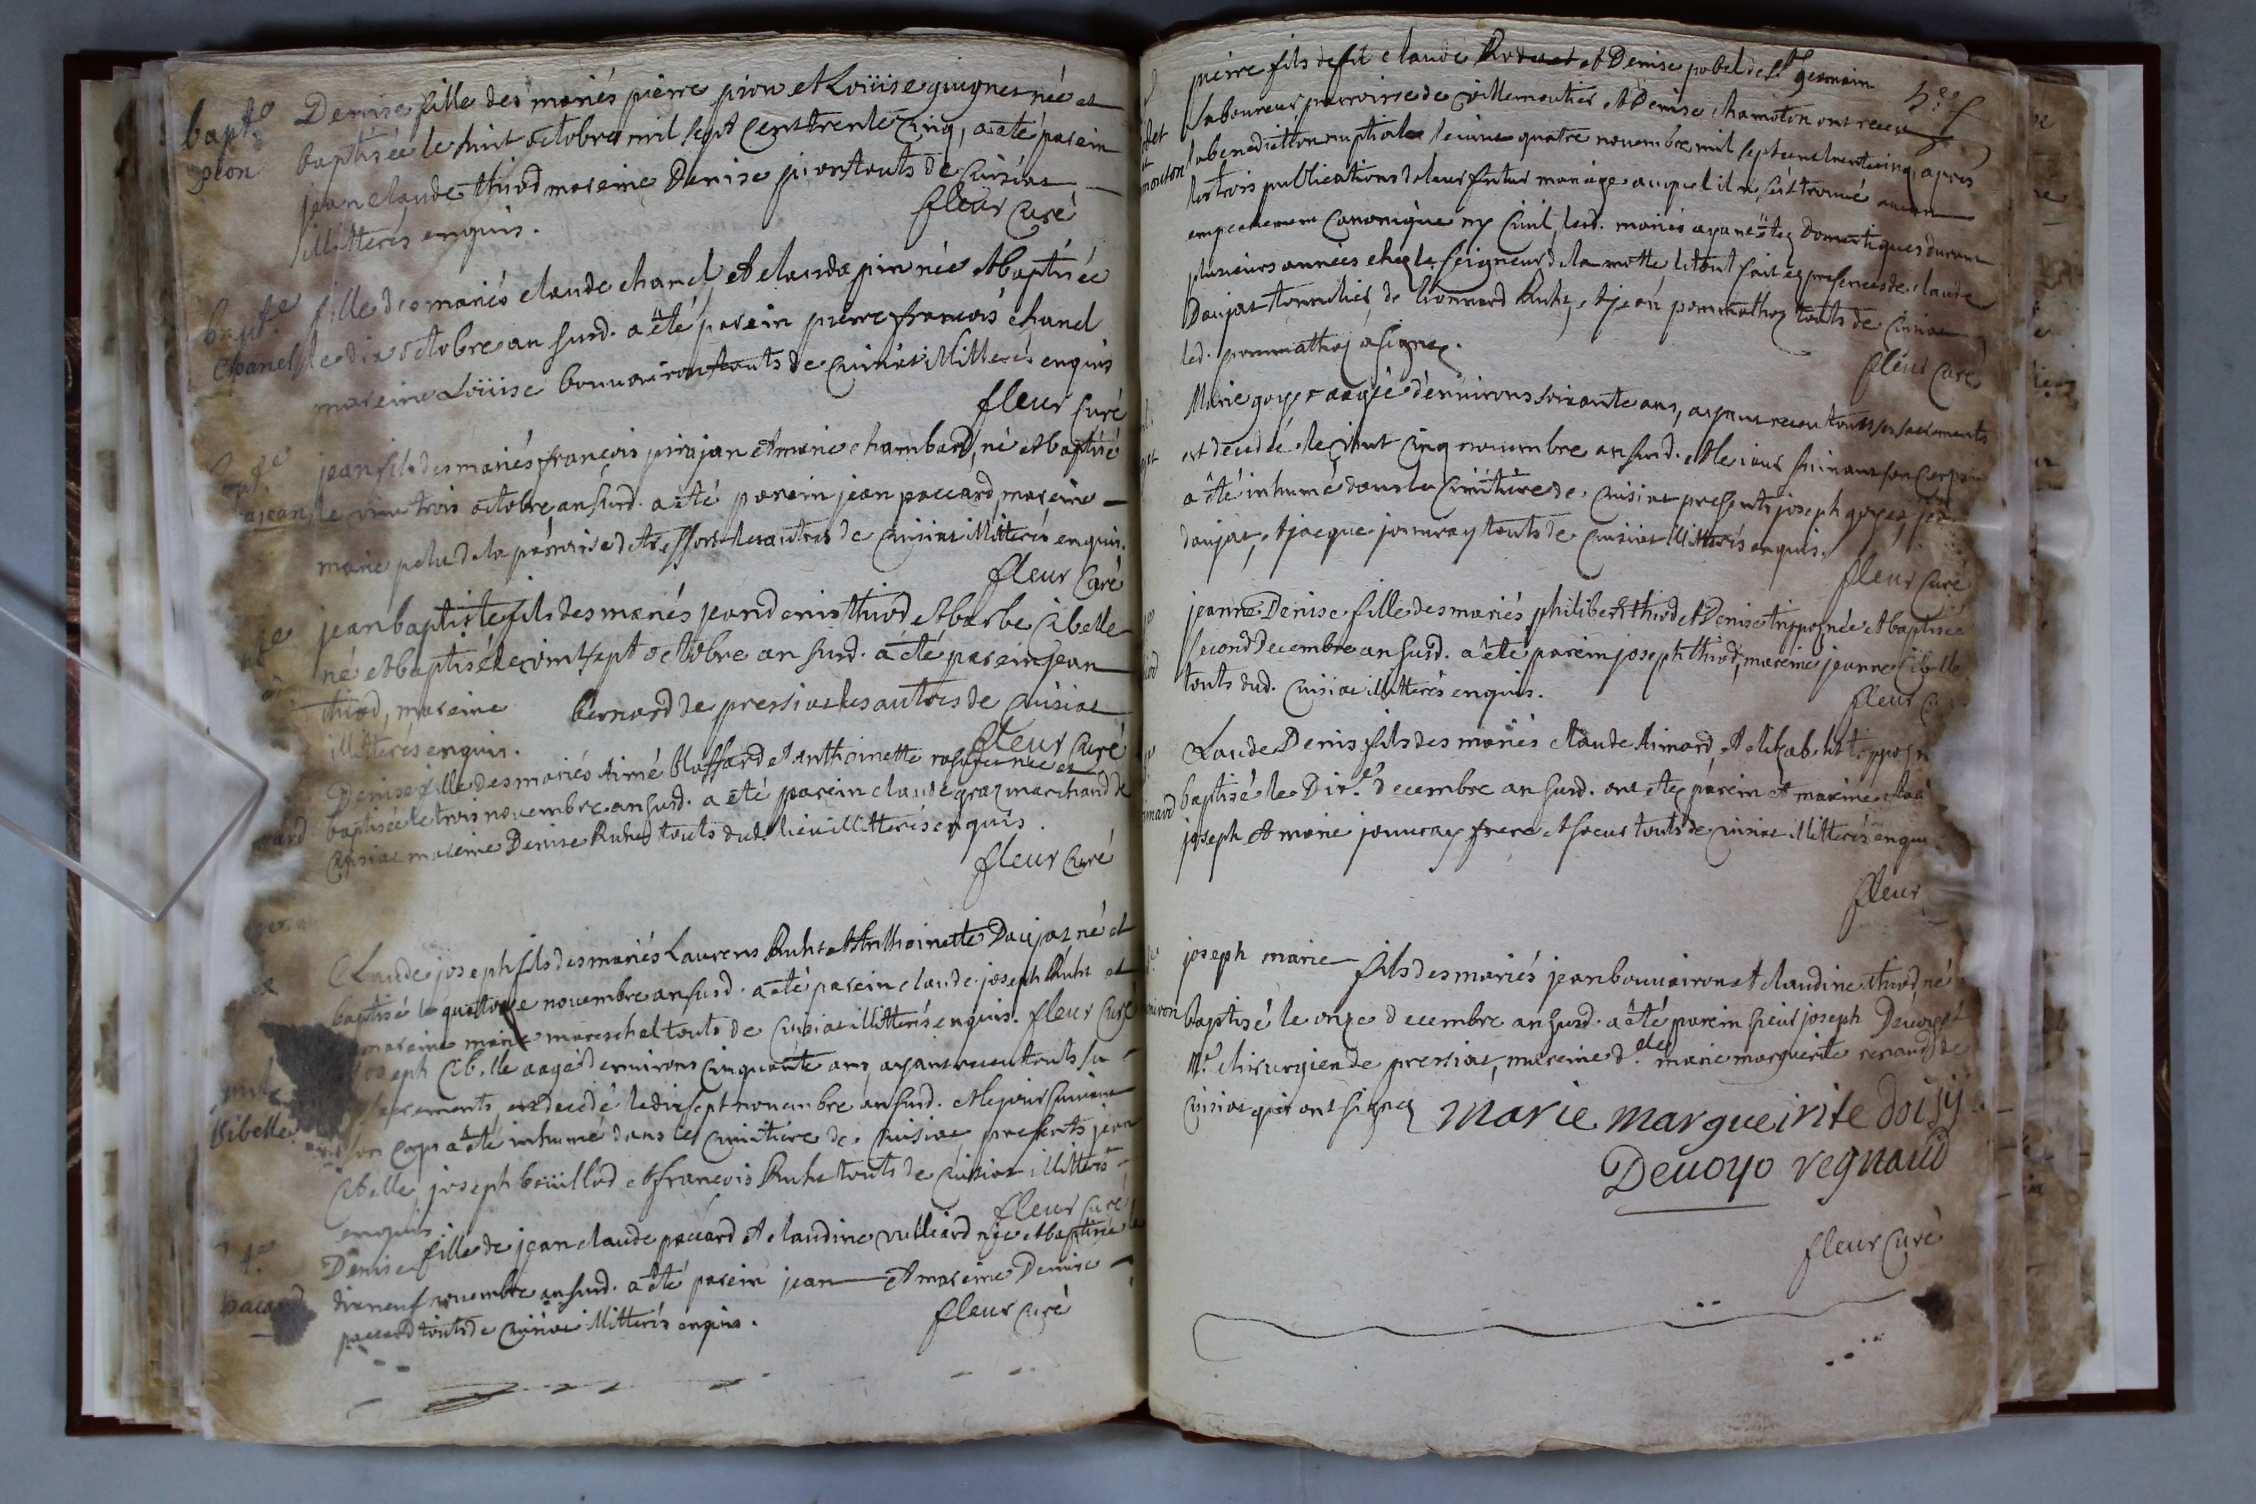 bapt.e
pion
Denise fille des mariés pierre pion et Loüise guignet née et
baptisée le huit octobre mil sept cents trente cinq, a été parein
jean claude thiod mareine Denise pion touts de Cuisiat
illitterés enquis.
fleur Curé
bapt.e
chanel
fille des mariés claude chanel et clauda pin née et baptisée
le dix octobre an susd. a été parein pierre françois chanel
mareine Loüise bouvairon touts de Cuisiat illitterés enquis
fleur Curé
bapt.e
jean fils des mariés françois pirajan et marie chambard, né et baptisé
le vint trois octobre an susd. a été parein jean paccard, mareine
marie pelu de la parroisse de treffort les autres de Cuisiat illitterés enquis.
fleur Curé
jean baptiste fils des mariés jean denis thiod et barbe Cibelle
né et baptisé le vint sept octobre an susd. a été parein jean
thiod, mareine bernard de pressiat les autres de Cuisiat
illitterés enquis.
fleur Curé
Denise fille des mariés Aimé Maffard et Anthoinette née et
baptisée le trois novembre an susd. a été parein claude graz marchand de
Cuisiat mareine Denise Ruhet touts dud. lieu illitterés enquis.
fleur Curé
Claude joseph fils des mariés Laurens Ruhet et Anthoinette Daujat né et
baptisé le quattorze novembre an susd. a été parein claude joseph Ruhet et
mareine marie mareschel touts de Cuisiat illitterés enquis. fleur Curé
Cibelle
joseph Cibelle aagé d'environs Cinquante ans, ayant receu touts su
sacrements, est decedé le dix sept novembre an susd. et le jour suivant
son corps a été inhumé dans le Cimitiere de Cuisiat presents jean
Cibelle, joseph boüillod et françois Ruhet touts de Cuisiat illitterés
enquis
fleur Curé
pacard
Denise fille de jean claude paccard et claudine vulliard née et baptisée le
dixneuf novembre an susd. a été parein jean et mareine Denise
paccard touts de Cuisiat illitterés enquis.
fleur Curé
pierre fils de fû claude Rodet et Denise pobel de St germain
laboureur parroisse de villemoutier et Denise chamoton ont receu
la benediction nuptiale le vint quatre novembre mil sept cent trente cinq, apres
les trois publications de leur futur mariage auquel il ne s'est trouvé aucun
empechement Canonique ny Civil, lesd. mariés ayant étez domestiques durant
plusieurs années chez le seigneur de la motte le tout fait ez presences de claude
Daujat tonnelier, de Leonnard Ruhet, et jean pommathoz touts de Cuisiat
led. pommathoz a signez.
fleur Curé
Marie goyet aagée d'environs soixante ans, ayant receu touts ses sacrements
est decedée le vint cinq novembre an susd. et le jour suivant son corps
a été inhumé dans le Cimitiere de Cuisiat presents joseph goyet,
daujat, et jacque jouvray touts de Cuisiat illitterés enquis.
fleur Curé
jeanne Denise fille des mariés philibert thiod et Denise tripoz née et baptisée
second Decembre an susd. a été parein joseph thiod, mareine jeanne Cibelle
touts dud. Cuisiat illitterés enquis.
fleur
Laude Denis fils des mariés claude Aimard, et elizabeth
baptisé le Dix.e Decembre an susd. ont étez parein et mareine
joseph et marie jouvray frere et soeur touts de Cuisiat illitterés enquis
fleur
joseph marie fils des mariés jean bouvairon et claudine thiod né
baptisé le onze decembre an susd. a été parein sieur joseph Devoyo
M.e chirurgien de pressiat, mareine d.elle marie marguerite renaud de
Cuisiat qui ont signez marie margueirite doisy
Devoyo regnaud
fleur Curé